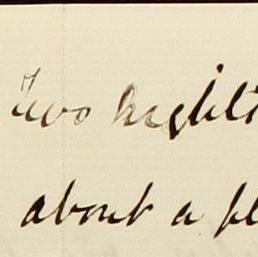 two nights
about a pl